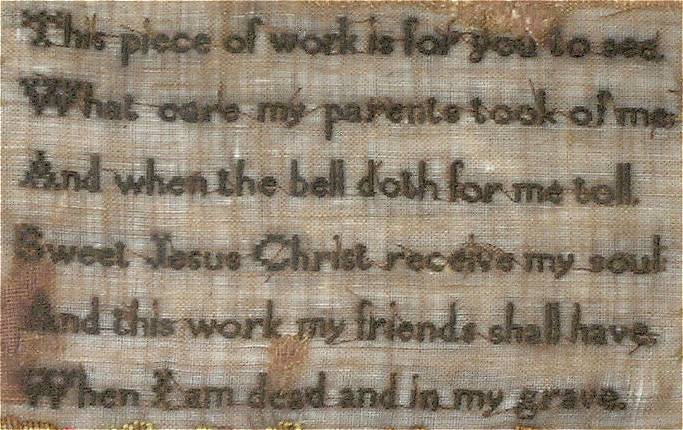 This piece of work is for you to see.
What care my parents took of me.
And when the bell doth for me toll.
Sweet Jesus Christ receive my soul:
And this work my friends shall have.
When I am dead and in my grave.